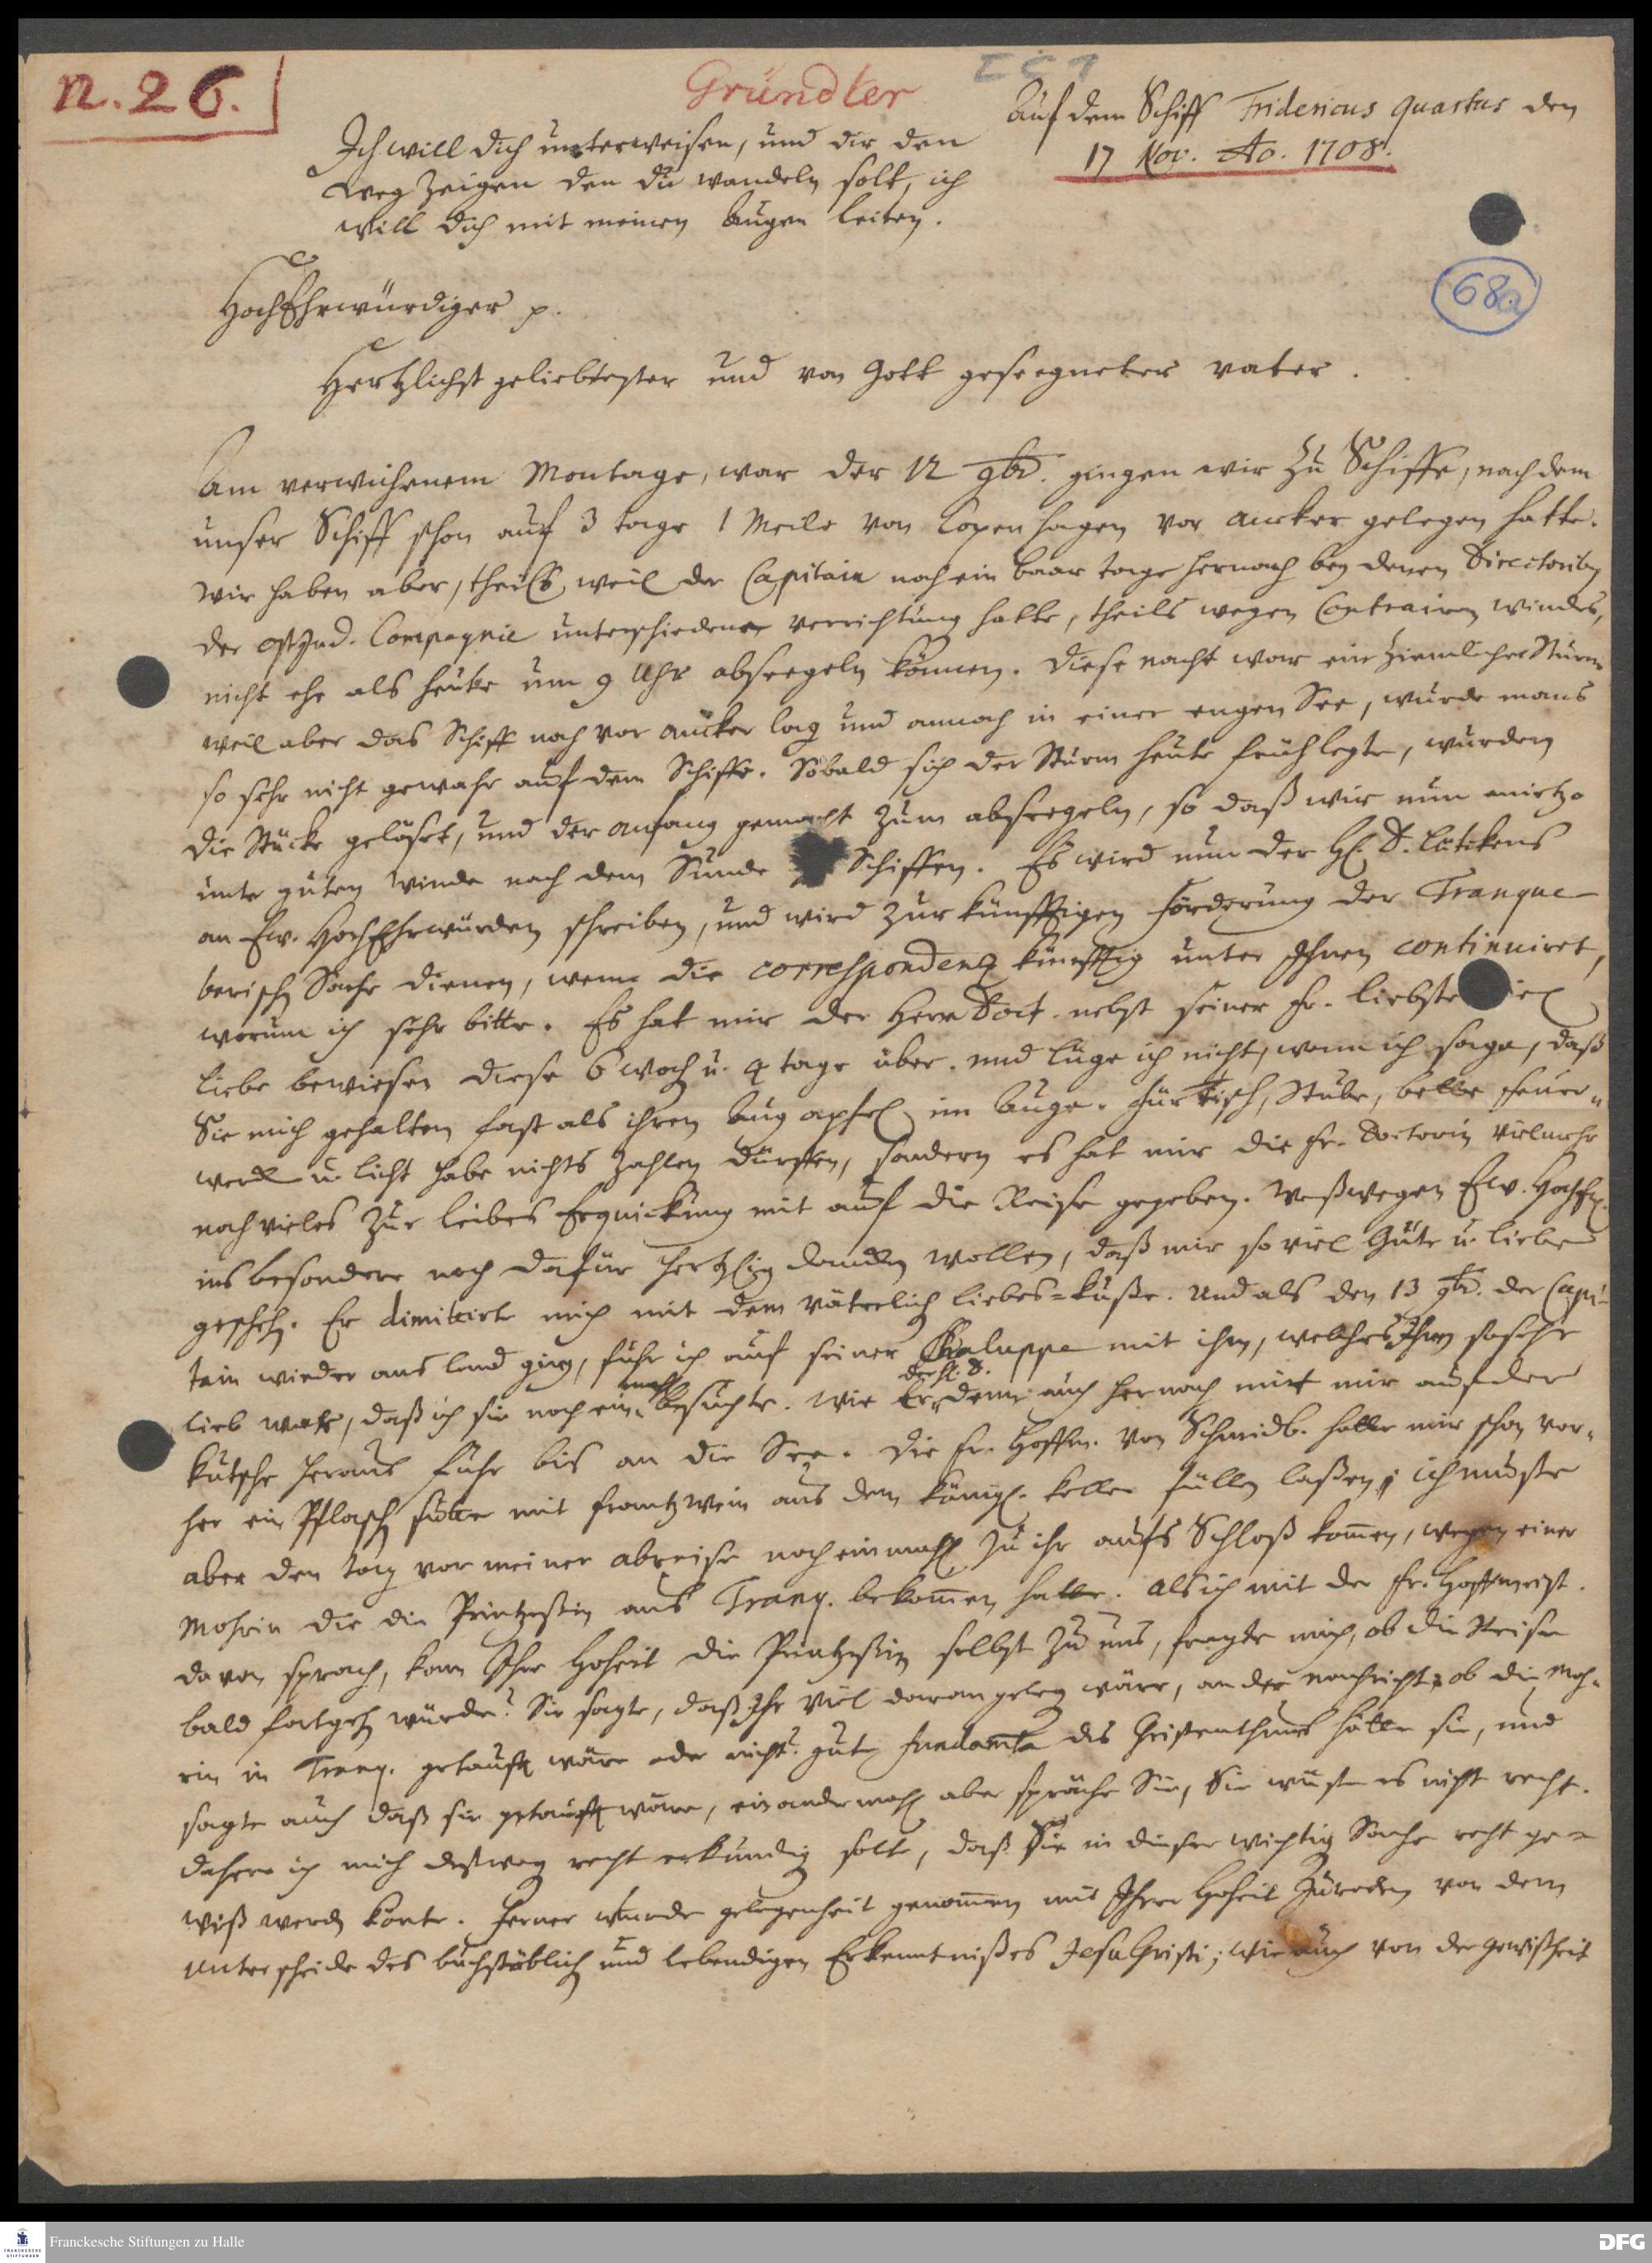 n. 26.
Gründler
I C 7
Auf dem Schiff Fridericus quartus den
17 Nov. Ao. 1708.
Ich will dich unterweisen, und dir den
Weg zeigen den du wandeln solt, ich
will dich mit meinen Augen leiten.
68a
HochEhrwürdiger p.
Hertzlichst geliebtester und von Gott geseegneter Vater.
Am verwichenem Montage, war der 12 9br. gingen wir zu Schiffe, nach dem
unser Schiff schon auf 3 tage 1 Meile von Copenhagen vor ancker gelegen hatte.
Wir haben aber, theils weil der Capitain noch ein baar tage hernach bey denen Directorib9
der OstInd. Compagnie unterschiedene verrichtung hatte, theils wegen Contrairen windes,
nicht ehe als heute um 9 Uhr abseegeln können. Diese nacht war ein ziemlicher Sturm
weil aber das Schiff noch vor ancker lag und annoch in einer engen See, wurde mans
so sehr nicht gewahr auf dem Schiffe. Sobald sich der Sturm heute früh legte, wurden
die Stücke gelöset, und der anfang gemacht zum abseegeln, so daß wir nun anietzo
unter guten winde nach dem Sunde Schiffen. Es wird nun der H. D. Lütkens
an Ew. HochEhrwürden schreiben, und wird zur künfftigen förderung der Tranque-
barisch Sache dienen, wenn die correspondenz künfftig unter Ihnen continuiret,
worum ich sehr bitte. Es hat mir der Herr Doct. nebst seiner Fr. Liebste viel
Liebe bewiesen diese 6 woch u. 4 tage über. und lüge ich nicht, wenn ich sage, daß
Sie mich gehalten fast als ihren Augapfel im Auge. für tisch, Stube, bette feuer-
werck u. licht habe nichts zahlen dürffen, sondern es hat mir die Fr. Doctorin vielmehr
noch vieles zur leibes Erquickung mit auf die Reise gegeben. Weßwegen Ew. HochE.
ins besondere noch dafür hertzlich dancken wollen, daß mir so viel Güte u. Liebe
gescheh. Er dimittirte mich mit dem väterlich Liebes-kuße. Und als den 13 9br. der Capi-
tain wieder ans land ging, fuhr ich auf seiner Chaluppe mit ihm, welches Ihm so sehr
lieb war, daß ich sie noch einmahl besuchte. Wie Er der H. D. denn auch hernach mit mir auf der
kutsche heraus fuhr bis an die See. Die Fr. Hoffm. von Schmidb. hatte mir schon vor-
her ein Pflasch futter mit frantzwein aus dem königl. keller füllen laßen; ich muste
aber den tag vor meiner abreise noch einmahl zu ihr aufs Schloß kommen, wegen einer
Mohrin die die Printzeßin aus Tranq. bekommen hatte. Als ich mit der Fr. Hoffmeist.
davon sprach, kam Ihre Hoheit die Printzeßin selbst zu uns, fragte mich, ob die Reise
bald fortgeh würde? Sie sagte, daß Ihr viel daran geleg wäre, an der nachricht, ob die Moh-
rin in Tranq. getaufft wäre oder nicht? gute fundamta des Christenthums hätte sie, und
sagte auch daß sie getaufft wäre, ein andermahl aber spräche Sie, Sie wüste es nicht recht.
Dahero ich mich deßweg recht erkundig solte, daß Sie in dieser wichtig Sache recht ge-
wiß werd könte. Ferner wurde gelegenheit genommen mit Ihrer Hoheit zureden von dem
unterscheide des buchstäblich und lebendigen Erkenntnißes Jesu Christi; wie auch von der gewißheit
Franckesche Stiftungen zu Halle
DFG